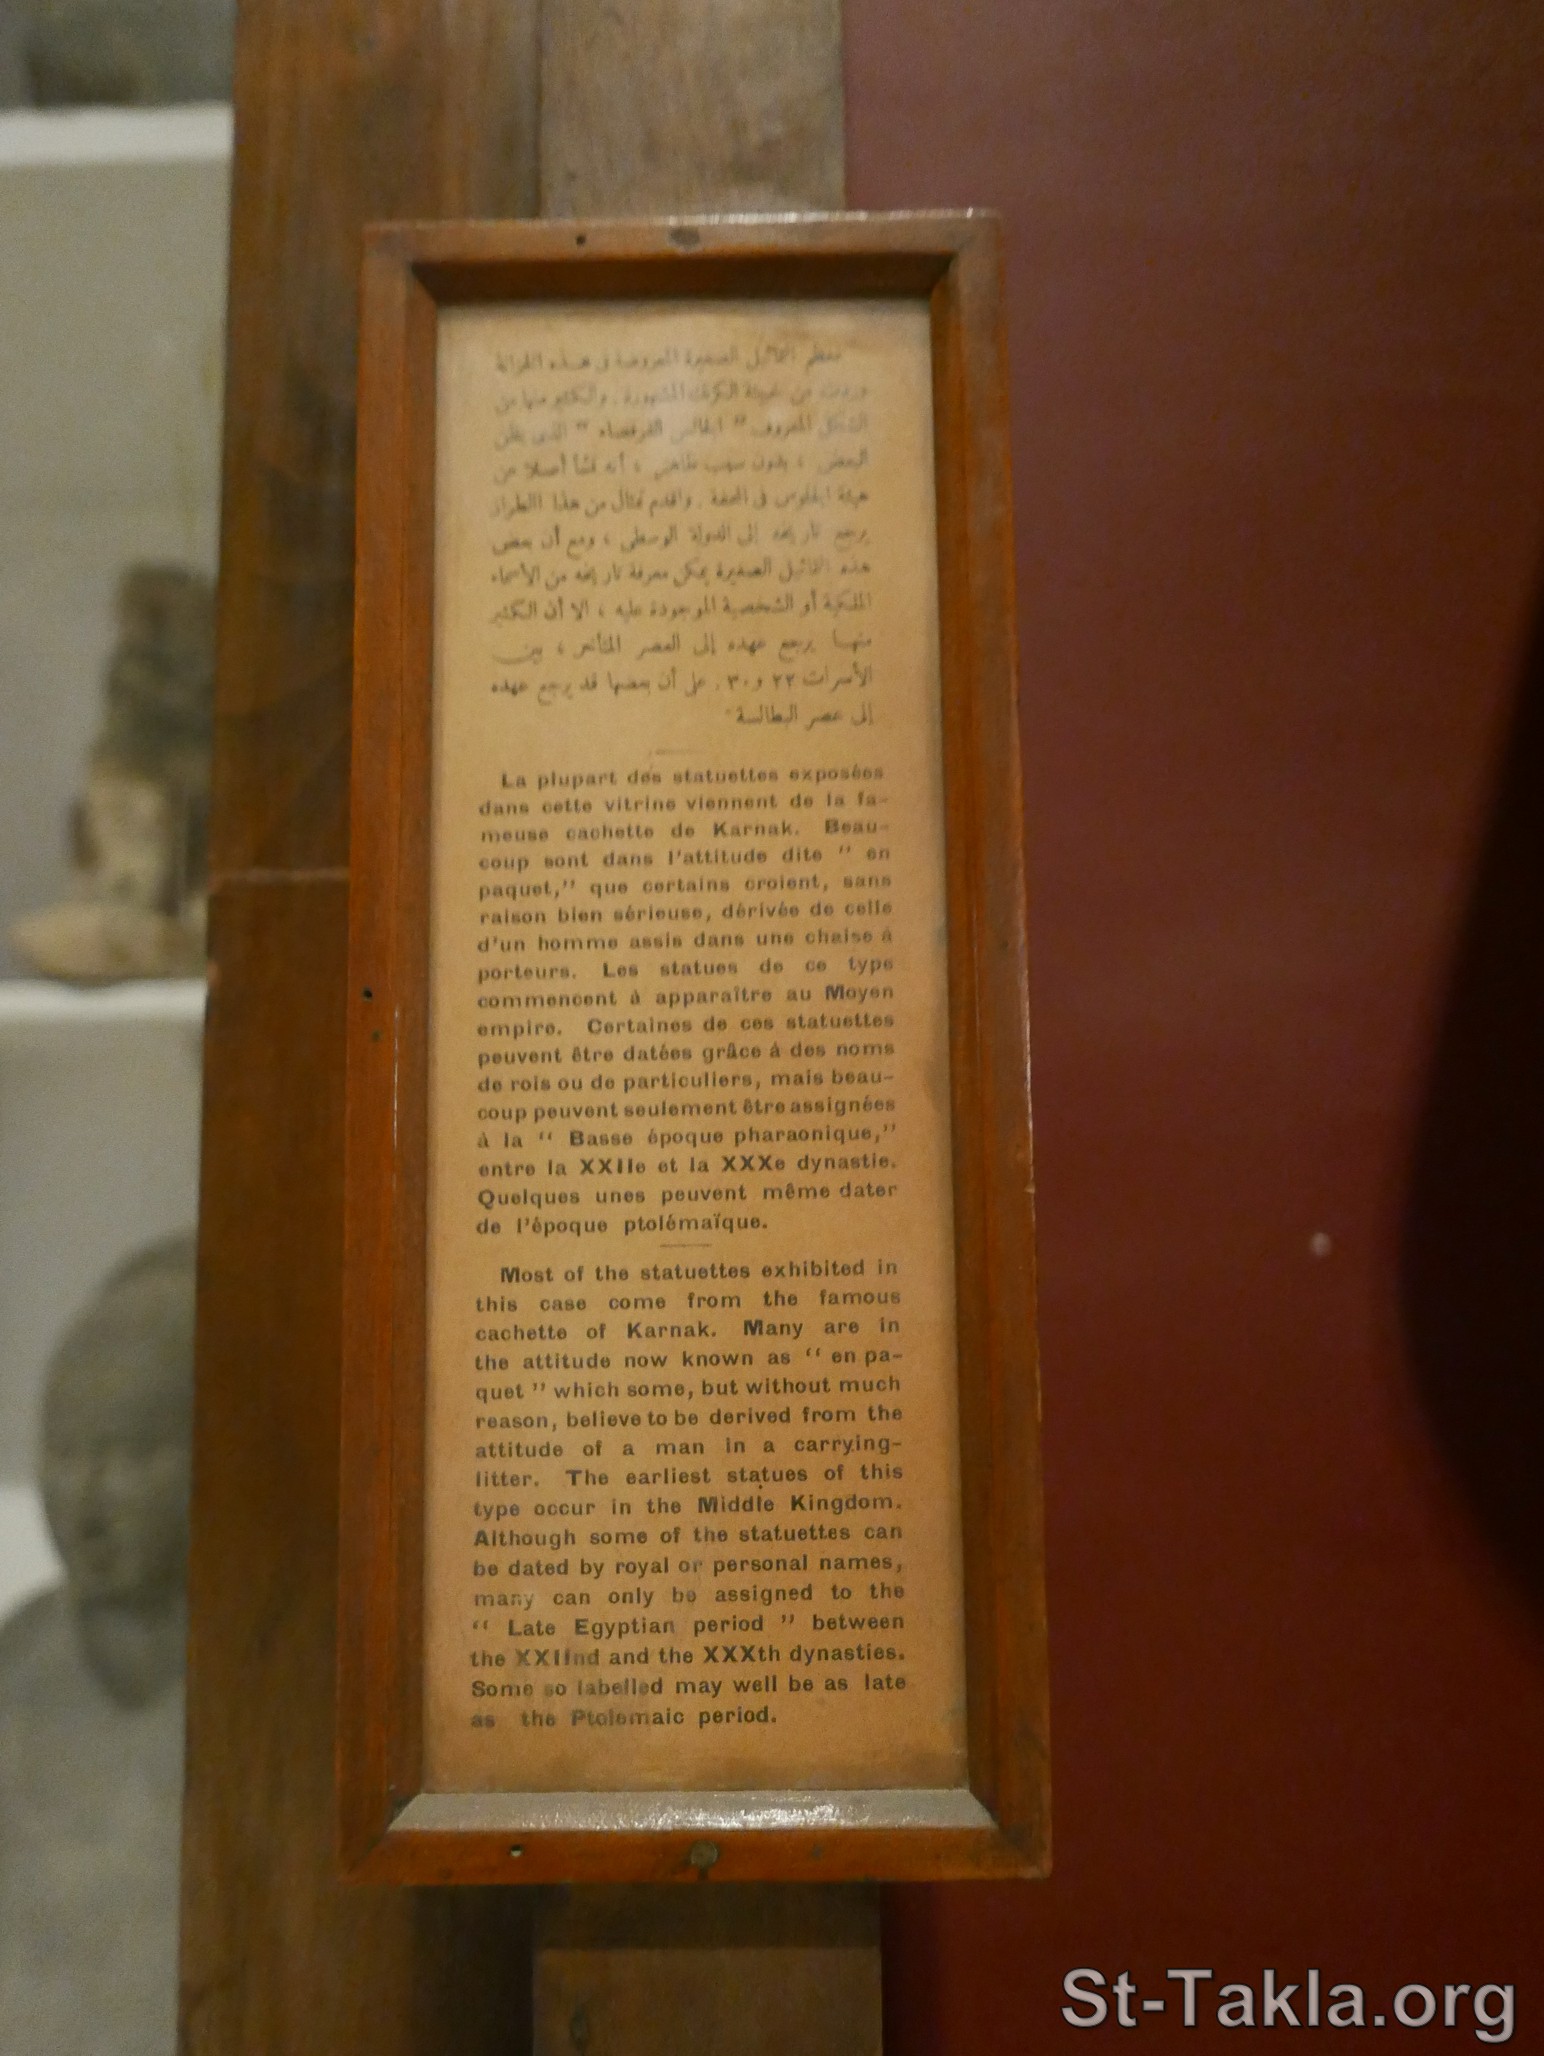 معظم التماثيل الصغيرة المعروضة فى هذه الخزانة
وردت من خبيئة الكرنك المشهورة . والكثير منها من
الشكل المعروف " الجالس القرفصاء " الذى يظن
البعض ، بدون سبب ظاهر ، أنه نشأ أصلا من
هيئة الجلوس فى المحفة . وأقدم تمثال من هذا الطراز
يرجع تاريخه إلى الدولة الوسطى ، ومع أن بعض
هذه التماثيل الصغيرة يمكن معرفة تاريخه من الأسماء
الملكية أو الشخصية الموجودة عليه ، الا أن الكثير
منهــا يرجع عهده إلى العصر المتأخر ، بين
الأسرات ٢٢ و ٣٠ . على أن بعضها قد يرجع عهده
إلى عصر البطالسة .
La plupart des statuettes exposées
dans cette vitrine viennent de la fa-
meuse cachette de Karnak. Beau-
coup sont dans l'attitude dite " en
paquet," que certains croient, sans
raison bien sérieuse, dérivée de celle
d'un homme assis dans une chaise à
porteurs. Les statues de ce type
commencent à apparaître au Moyen
empire. Certaines de ces statuettes
peuvent être datées grâce à des noms
de rois ou de particuliers, mais beau-
coup peuvent seulement être assignées
à la " Basse époque pharaonique,"
entre la XXIIe et la XXXe dynastie.
Quelques unes peuvent même dater
de l'époque ptolémaïque.
Most of the statuettes exhibited in
this case come from the famous
cachette of Karnak. Many are in
the attitude now known as " en pa-
quet " which some, but without much
reason, believe to be derived from the
attitude of a man in a carrying-
litter. The earliest statues of this
type occur in the Middle Kingdom.
Although some of the statuettes can
be dated by royal or personal names,
many can only be assigned to the
" Late Egyptian period " between
the XXIInd and the XXXth dynasties.
Some so labelled may well be as late
as the Ptolemaic period.
St-Takla.org